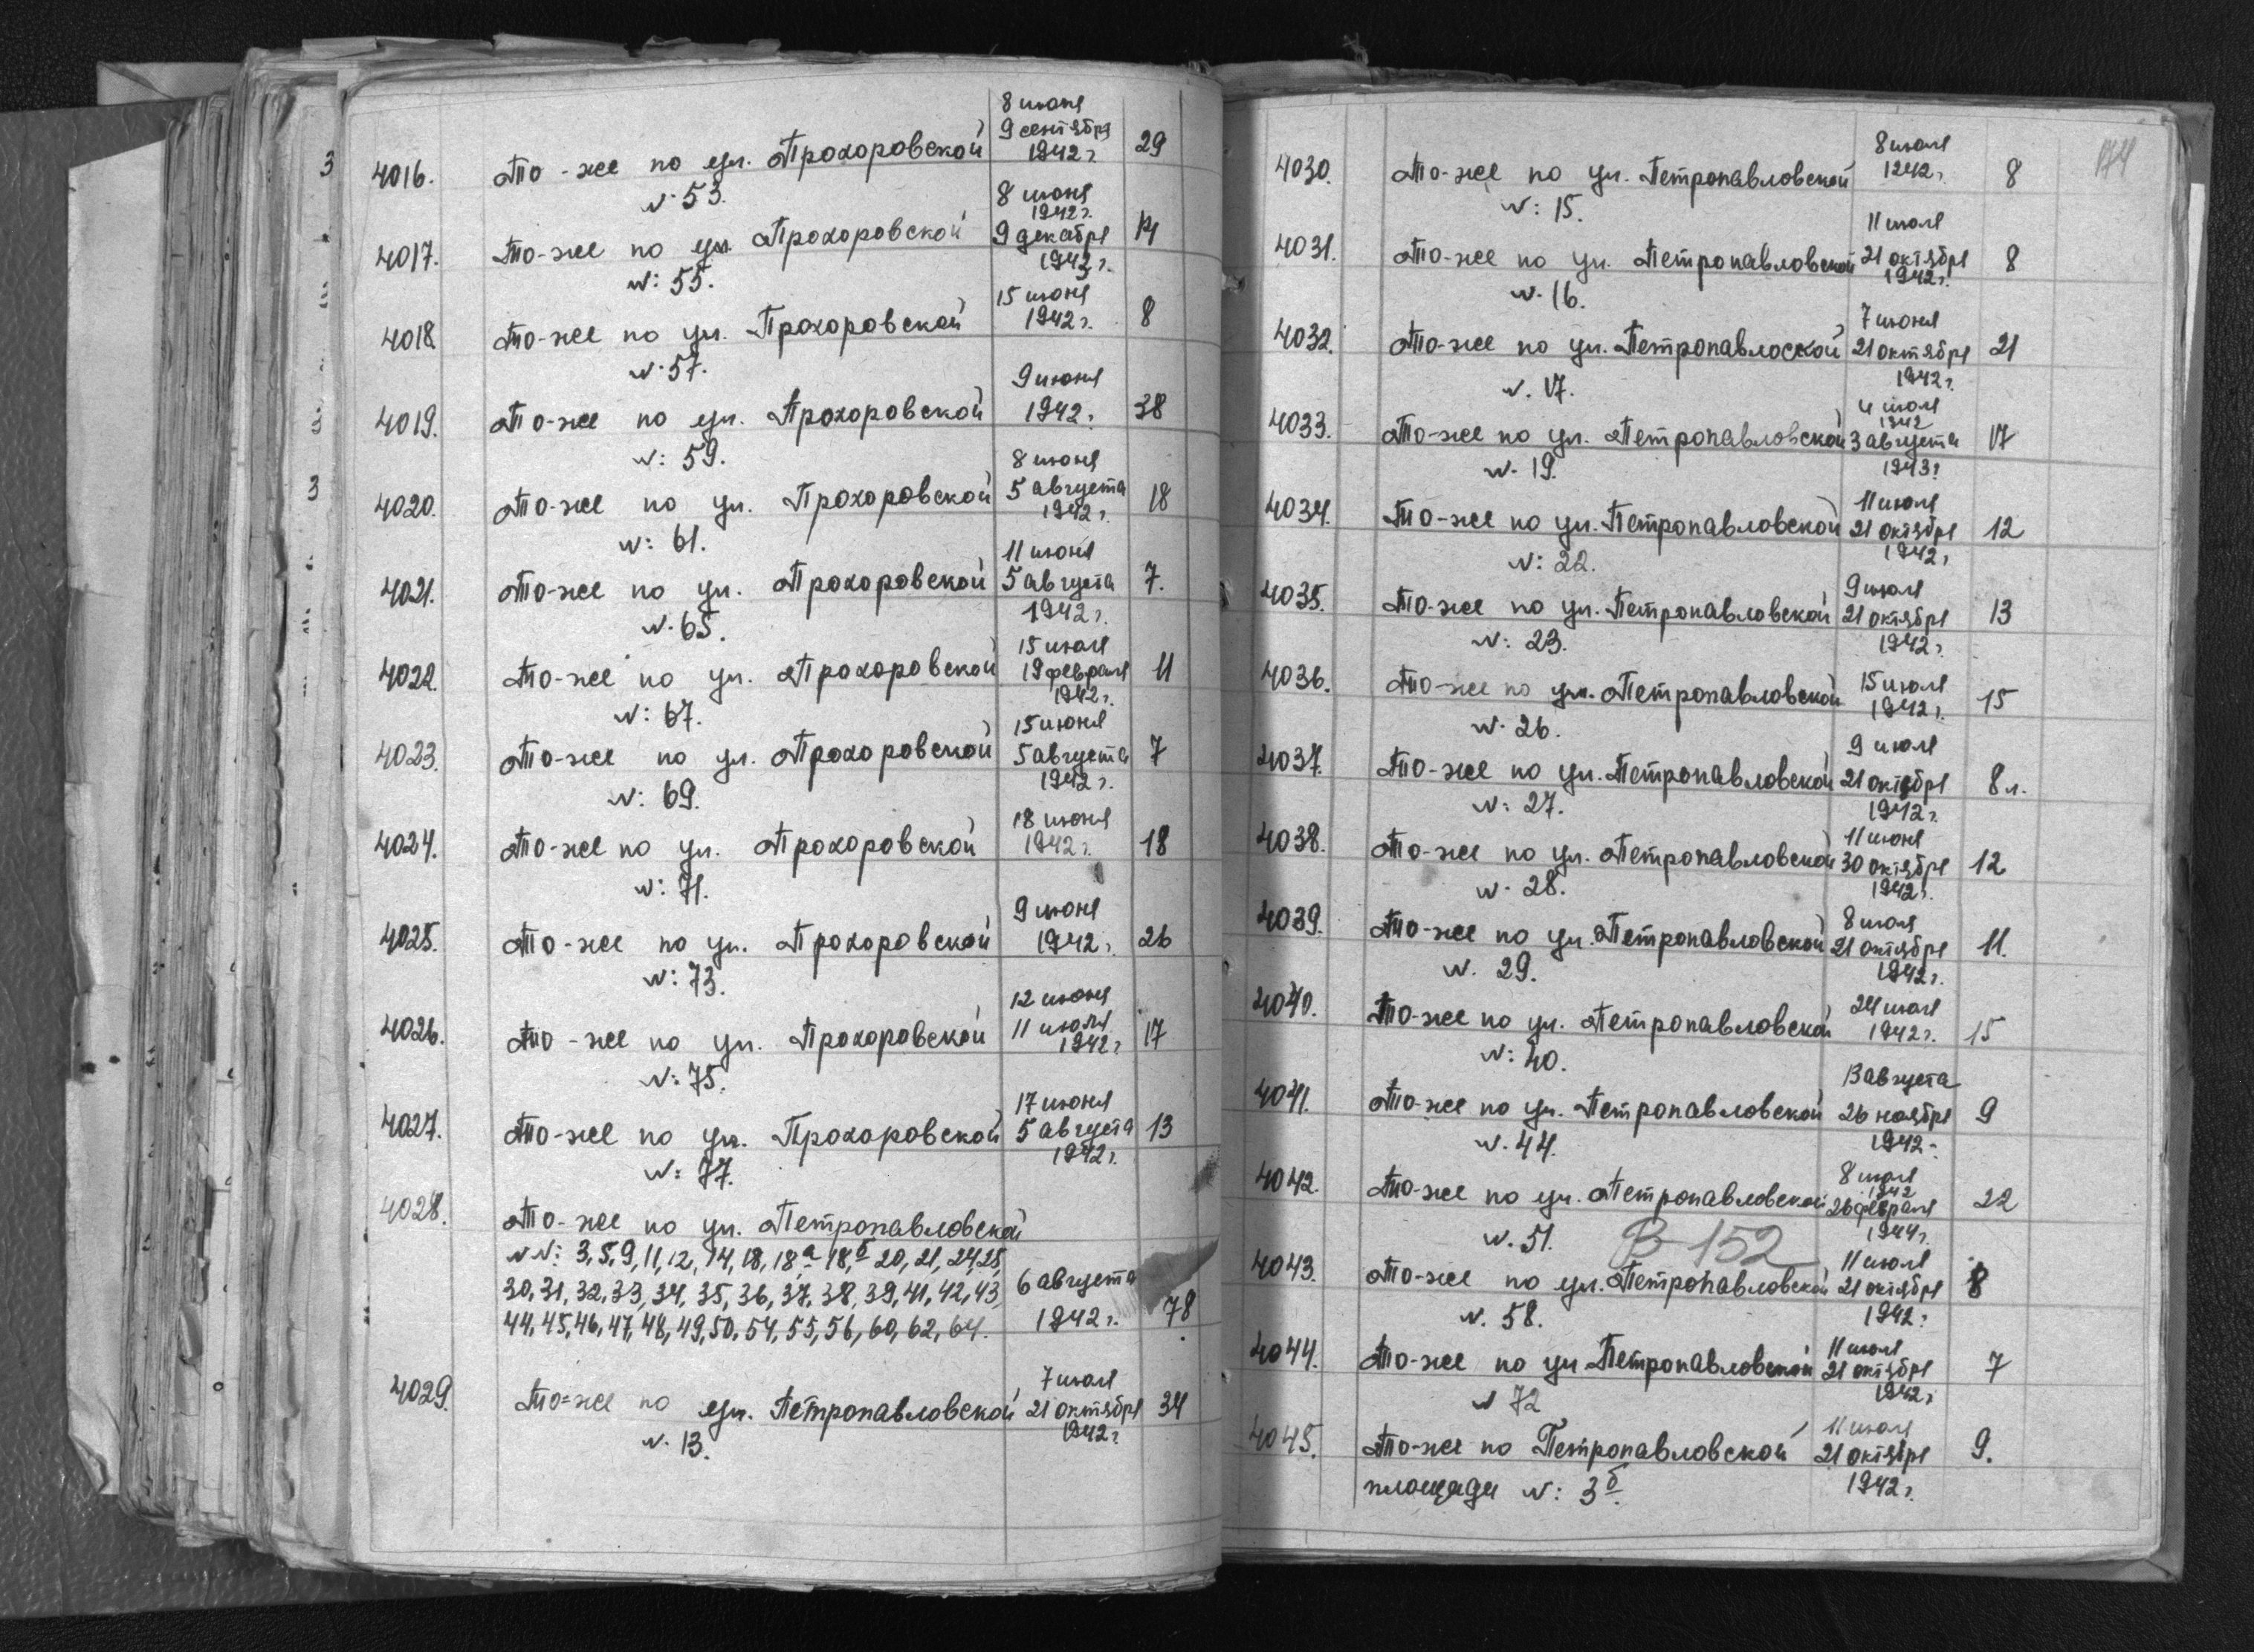 8 июня
9 сентября
4016. То-же по ул. Прохоровской 1942 г. 29
№ 53.
8 июня
1942 г.
4017. То-же по ул. Прохоровской 9 декабря
№: 55. 1942 г.
15 июня
4018 То-же по ул. Прохоровской 1942 г. 8
№ 57.
9 июня
4019. То-же по ул. Прохоровской 1942 г. 38
№: 59.
8 июня
4020. То-же по ул. Прохоровской 5 августа 18
1942 г.
№: 61.
11 июня
4021. То-же по ул. Прохоровской 5 августа 7.
№ 65. 1942 г.
15 июля
4022. То-же по ул. Прохоровской 19 февраля 11
1942 г.
№: 67.
15 июня
4023. То-же по ул. Прохоровской 5 августа 7
№: 69. 1942 г.
18 июня
4024. То-же по ул. Прохоровской 1942 г. 18
№: 71.
9 июня
4025. То-же по ул. Прохоровской 1942 г. 26
№: 73.
12 июня
4026. То-же по ул. Прохоровской 11 июля 17
1942 г
№: 75.
17 июня
4027. То-же по ул. Прохоровской 5 августа 13
№: 77. 1942 г.
4028. То-же по ул. Петропавловской
№№: 3, 5, 9, 11, 12, 14, 18, 18а 18б 20, 21, 24, 25,
30, 31, 32, 33, 34, 35, 36, 37, 38, 39, 41, 42, 43, 6 августа
44, 45, 46, 47, 48, 49, 50, 54, 55, 56, 60, 62, 64. 1942 г. 78
7 июля
4029. То-же по ул. Петропавловской 21 октября 34
№ 13. 1942 г.
174
8 июля
4030. То-же по ул. Петропавловской 1942 г. 8
№: 15.
11 июля
4031. То-же по ул. Петропавловской 21 октября 8
№ 16. 1942 г.
7 июня
4032. То-же по ул. Петропавлоской 21 октября 21
№. 17. 1942 г.
4 июля
1942
4033. То-же по ул. Петропавловской 3 августа 17
№ 19. 1943 г
11 июля
4034. То-же по ул. Петропавловской 21 октября 12
№: 22. 1942 г
9 июля
4035. То-же по ул. Петропавловской 21 октября 13
№: 23. 1942 г.
4036. То-же по ул. Петропавловской 15 июля 15
№ 26. 1942 г.
9 июля
4037. То-же по ул. Петропавловской 21 октября 8 л.
№: 27. 1942 г.
11 июня
4038. То-же по ул. Петропавловской 30 октября 12
№ 28. 1942 г.
8 июля
4039. То-же по ул. Петропавловской 21 октября 11.
№. 29. 1942 г.
24 июля
4040. То-же по ул. Петропавловской 1942 г. 15
№: 40.
13 августа
4041. То-же по ул. Петропавловской 26 ноября 9
№. 44. 1942 г
8 июля
1942
4042. То-же по ул. Петропавловской 26 февраля 22
№. 51. 1944 г.
В-152
11 июля
4043. То-же по ул. Петропавловской 21 октября 8
№. 58. 1942 г
11 июля
4044. То-же по ул Петропавловской 21 октября 7
№ 72 1942 г
11 июля
4045. То-же по Петропавловской 21 октября 9.
площади №: 3б. 1942 г.